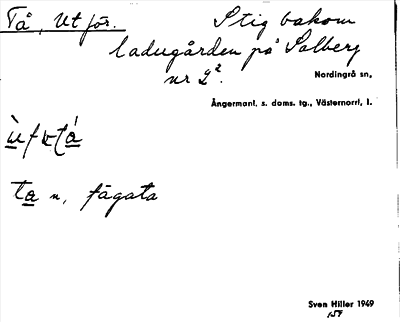 Tå, Utför.
Stig bakom
ladugården på Salberg
nr 2².
Nordingrå sn,
Ångermanl. s. doms. tg., Västernorrl. l.
ta n, fägata
Sven Hiller 1949
157